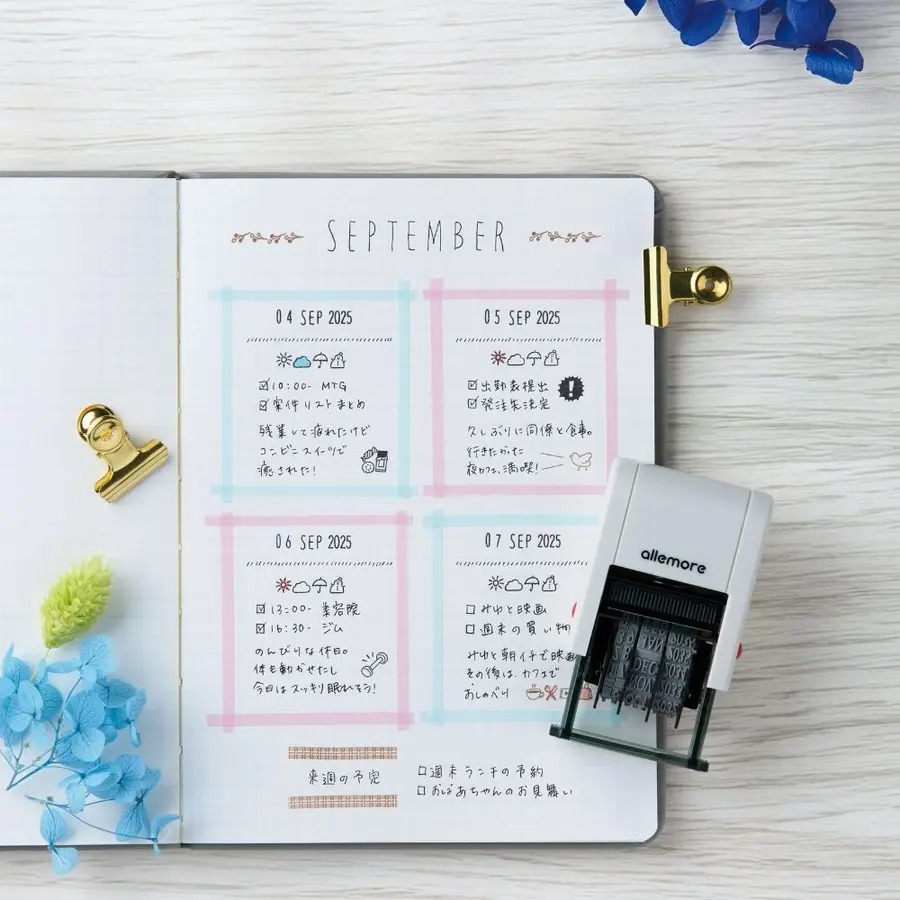 SEPTEMBER
04 SEP 2025
10:00- MTG
案件リストまとめ
残業して疲れたけど
コンビニスイーツで
癒された!
05 SEP 2025
出勤表提出
発注先決定
久しぶりに同僚と食事。
行きたかった
夜カフェ、満喫!
06 SEP 2025
13:00- 美容院
16:30- ジム
のんびりな休日。
体も動かせたし
今日はスッキリ眠れそう!
07 SEP 2025
みゆと映画
週末の買い物
みゆと朝イチで映画
その後は、カフェで
おしゃべり
allemore
来週の予定
週末ランチの予約
おばあちゃんのお見舞い